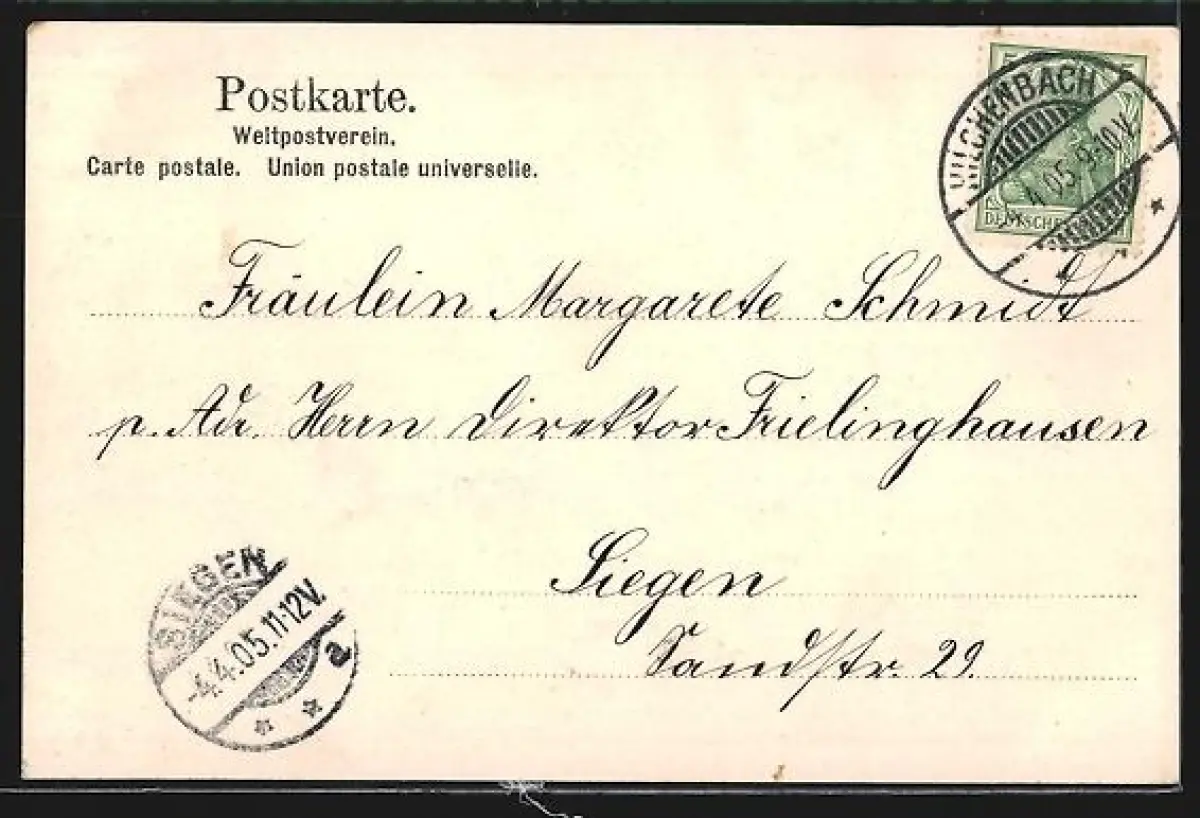 Postkarte.
Weltpostverein.
Carte postale. Union postale universelle.
HILCHENBACH
4.05.9-10V.
DEUTSCHES
Fräulein Margarete Schmidt
p. Adr. Herrn Direktor Frielinghausen
Siegen
Sandstr. 29.
SIEGEN
-4.4.05.11-12V.
a